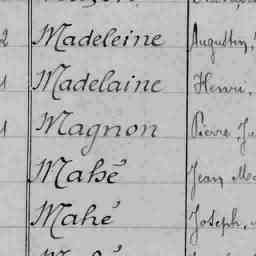 2 Madeleine Augustin
1 Madelaine Henri,
1 Magnon Pierre
Mahé Jean
Mahé Joseph,